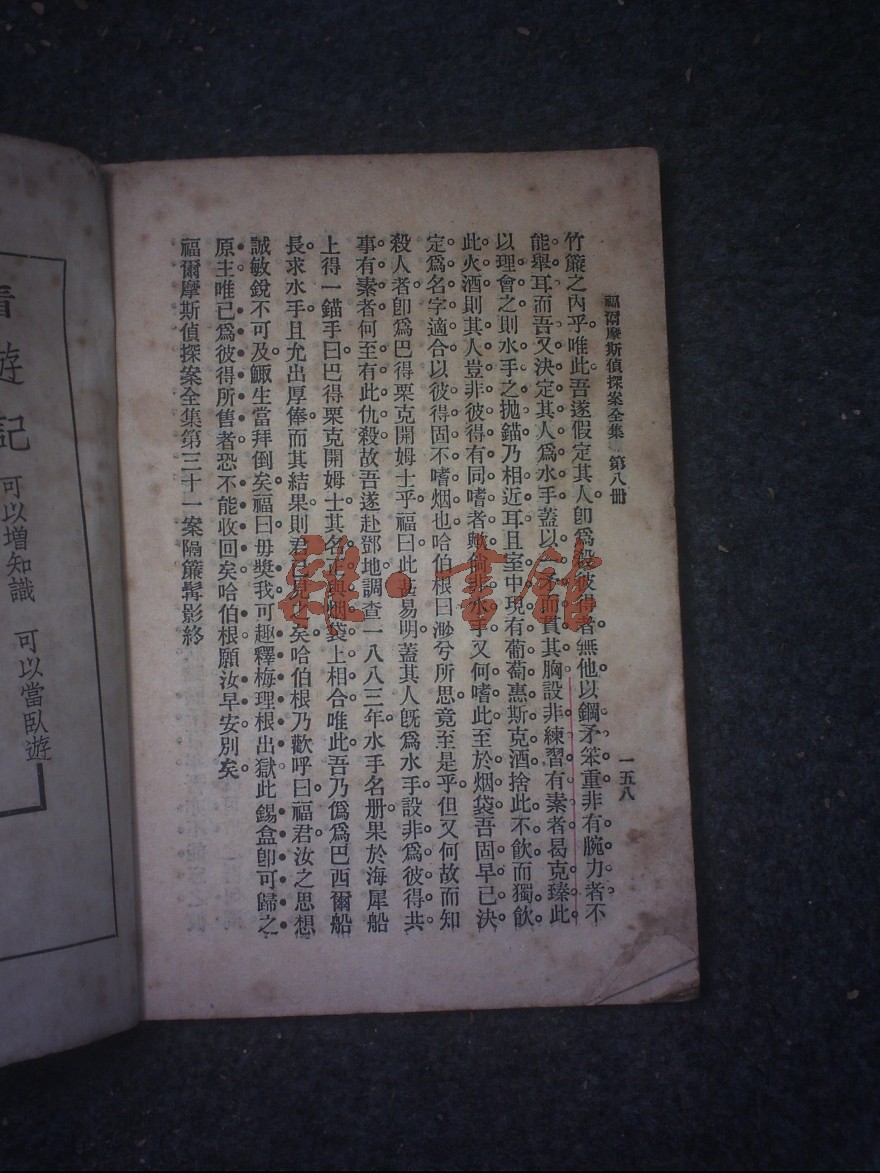 福爾摩斯偵探案全集 第八冊
一五八
竹簾之內乎。唯此吾遂假定其人卽爲殺彼得者無他以鋼矛笨重非有腕力者不
能舉耳而吾又決定其人爲水手蓋以一矛而貫其胸設非練習有素者曷克臻此
以理會之則水手之拋錨乃相近耳且室中現有葡萄惠斯克酒捨此不飲而獨飲
此火酒則其人豈非彼得有同嗜者歟倘非水手又何嗜此至於烟袋吾固早已決
定爲名字適合以彼得固不嗜烟也哈伯根曰渺兮所思竟至是乎但又何故而知
殺人者卽爲巴得栗克開姆士乎福曰此甚易明蓋其人旣爲水手設非爲彼得共
事有素者何至有此仇殺故吾遂赴鄧地調查一八八三年水手名册果於海犀船
上得一錨手曰巴得栗克開姆士其名正與烟袋上相合唯此吾乃僞爲巴西爾船
長求水手且允出厚俸而其結果則君已見之矣哈伯根乃歡呼曰福君汝之思想
誠敏銳不可及鯫生當拜倒矣福曰毋獎我可趣釋梅理根出獄此錫盒卽可歸之
原主唯已爲彼得所售者恐不能收回矣哈伯根願汝早安別矣
福爾摩斯偵探案全集第三十一案隔簾髯影終
遊記
可以增知識 可以當臥遊
雜·書館